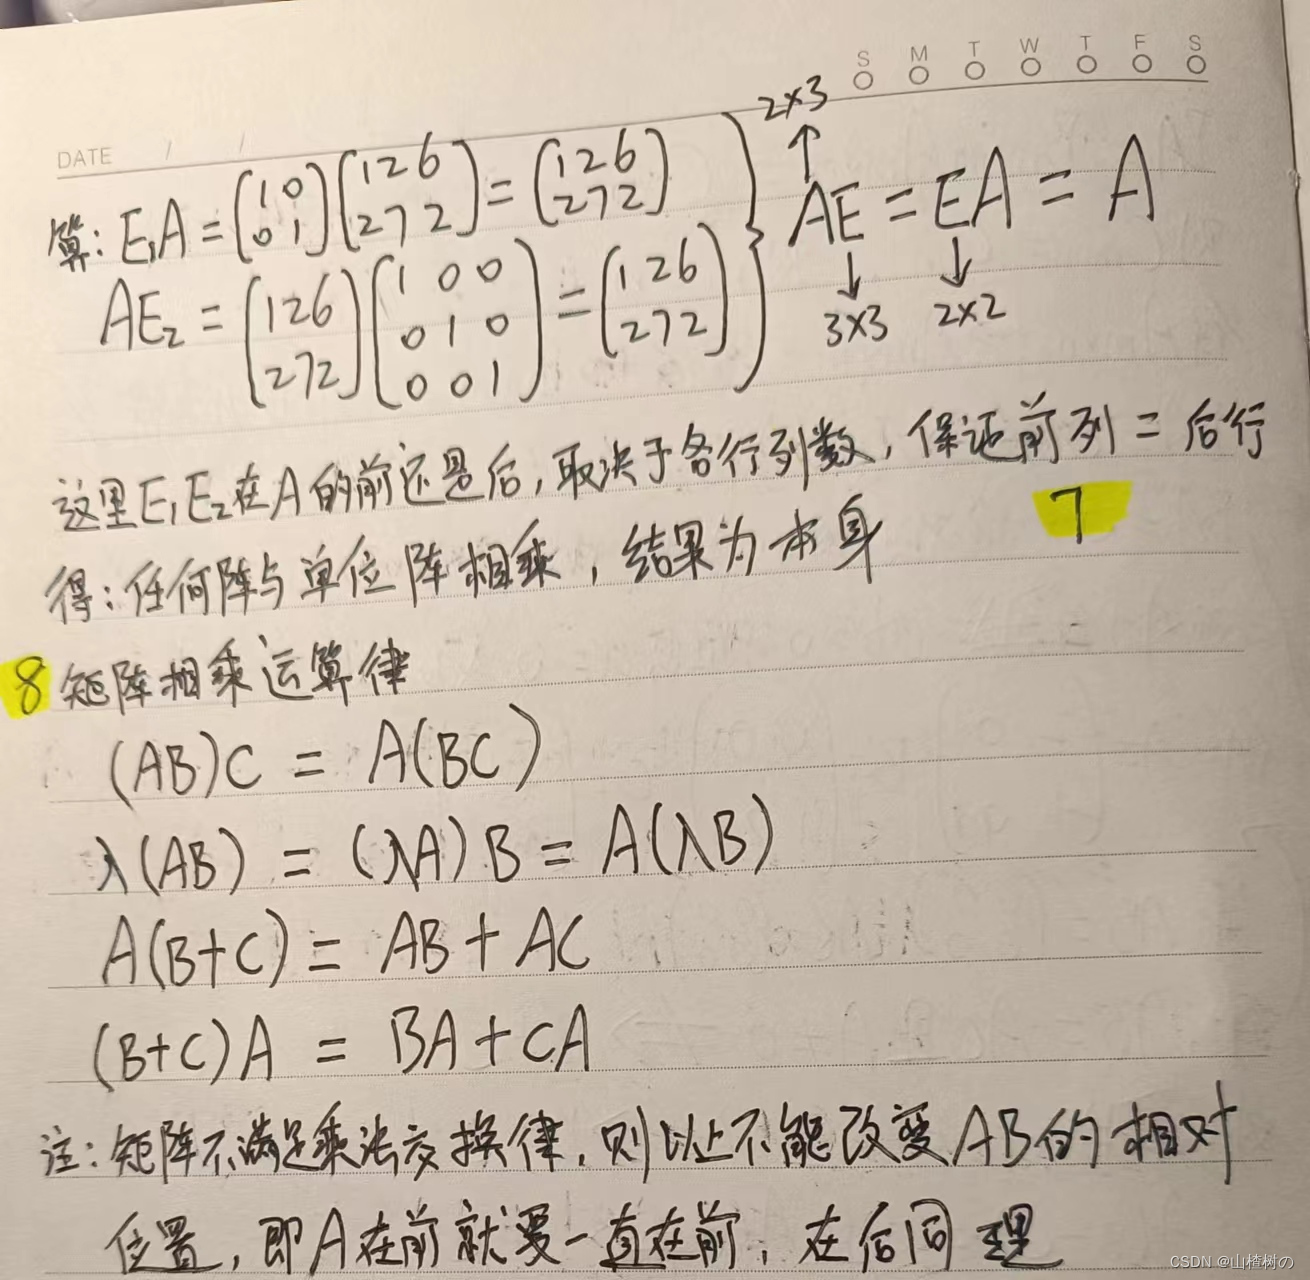 S M T W T F S
DATE / /
2×3
算: E₁A = (1 0 0 1) (1 2 6 2 7 2) = (1 2 6 2 7 2)
AE = EA = A
AE₂ = (1 2 6 2 7 2) (1 0 0 0 1 0 0 0 1) = (1 2 6 2 7 2)
3×3 2×2
这里E₁E₂在A的前还是后,取决于各行列数,保证前列=后行
7
得:任何阵与单位阵相乘,结果为本身
8 矩阵相乘运算律
(AB)C = A(BC)
λ(AB) = (λA)B = A(λB)
A(B+C) = AB + AC
(B+C)A = BA + CA
注:矩阵不满足乘法交换律,则以上不能改变AB的相对
位置,即A在前就要一直在前,在后同理
CSDN @山楂树の